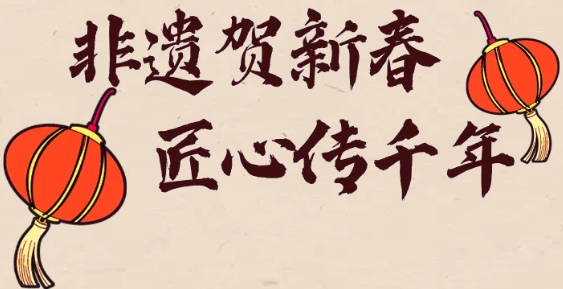 非遗贺新春
匠心传千年